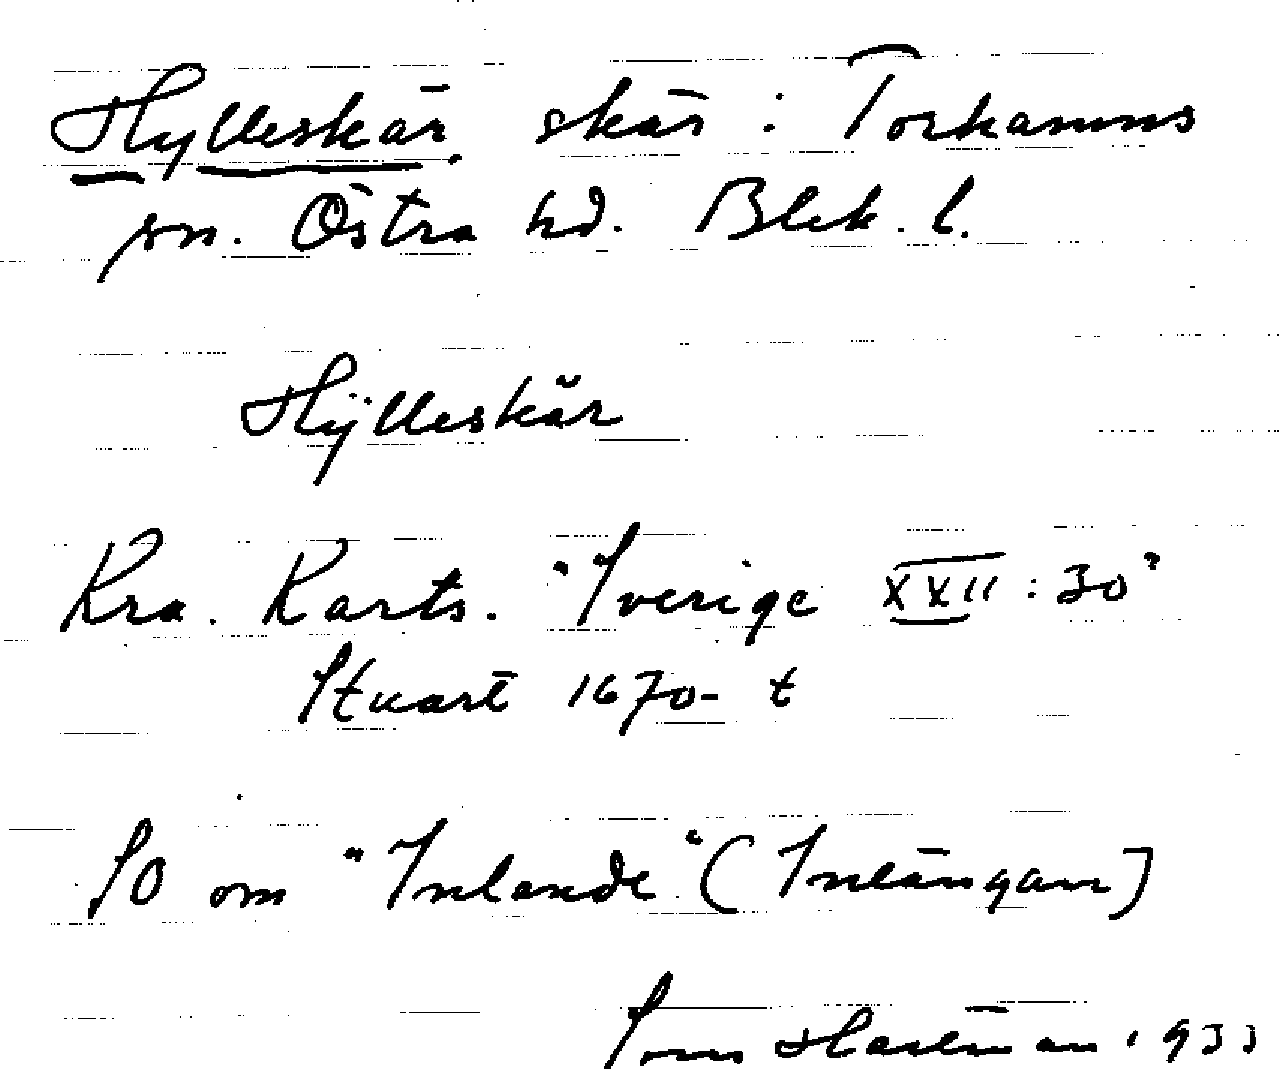 Hylleskär, skär i Torhamns
sn. Östra hd. Blek. l.
Hÿlleskär
Kra. Karts. "Sverige XXII:30"
Stuart 1670-t
SO om "Inlande" (Inlängan)
1933